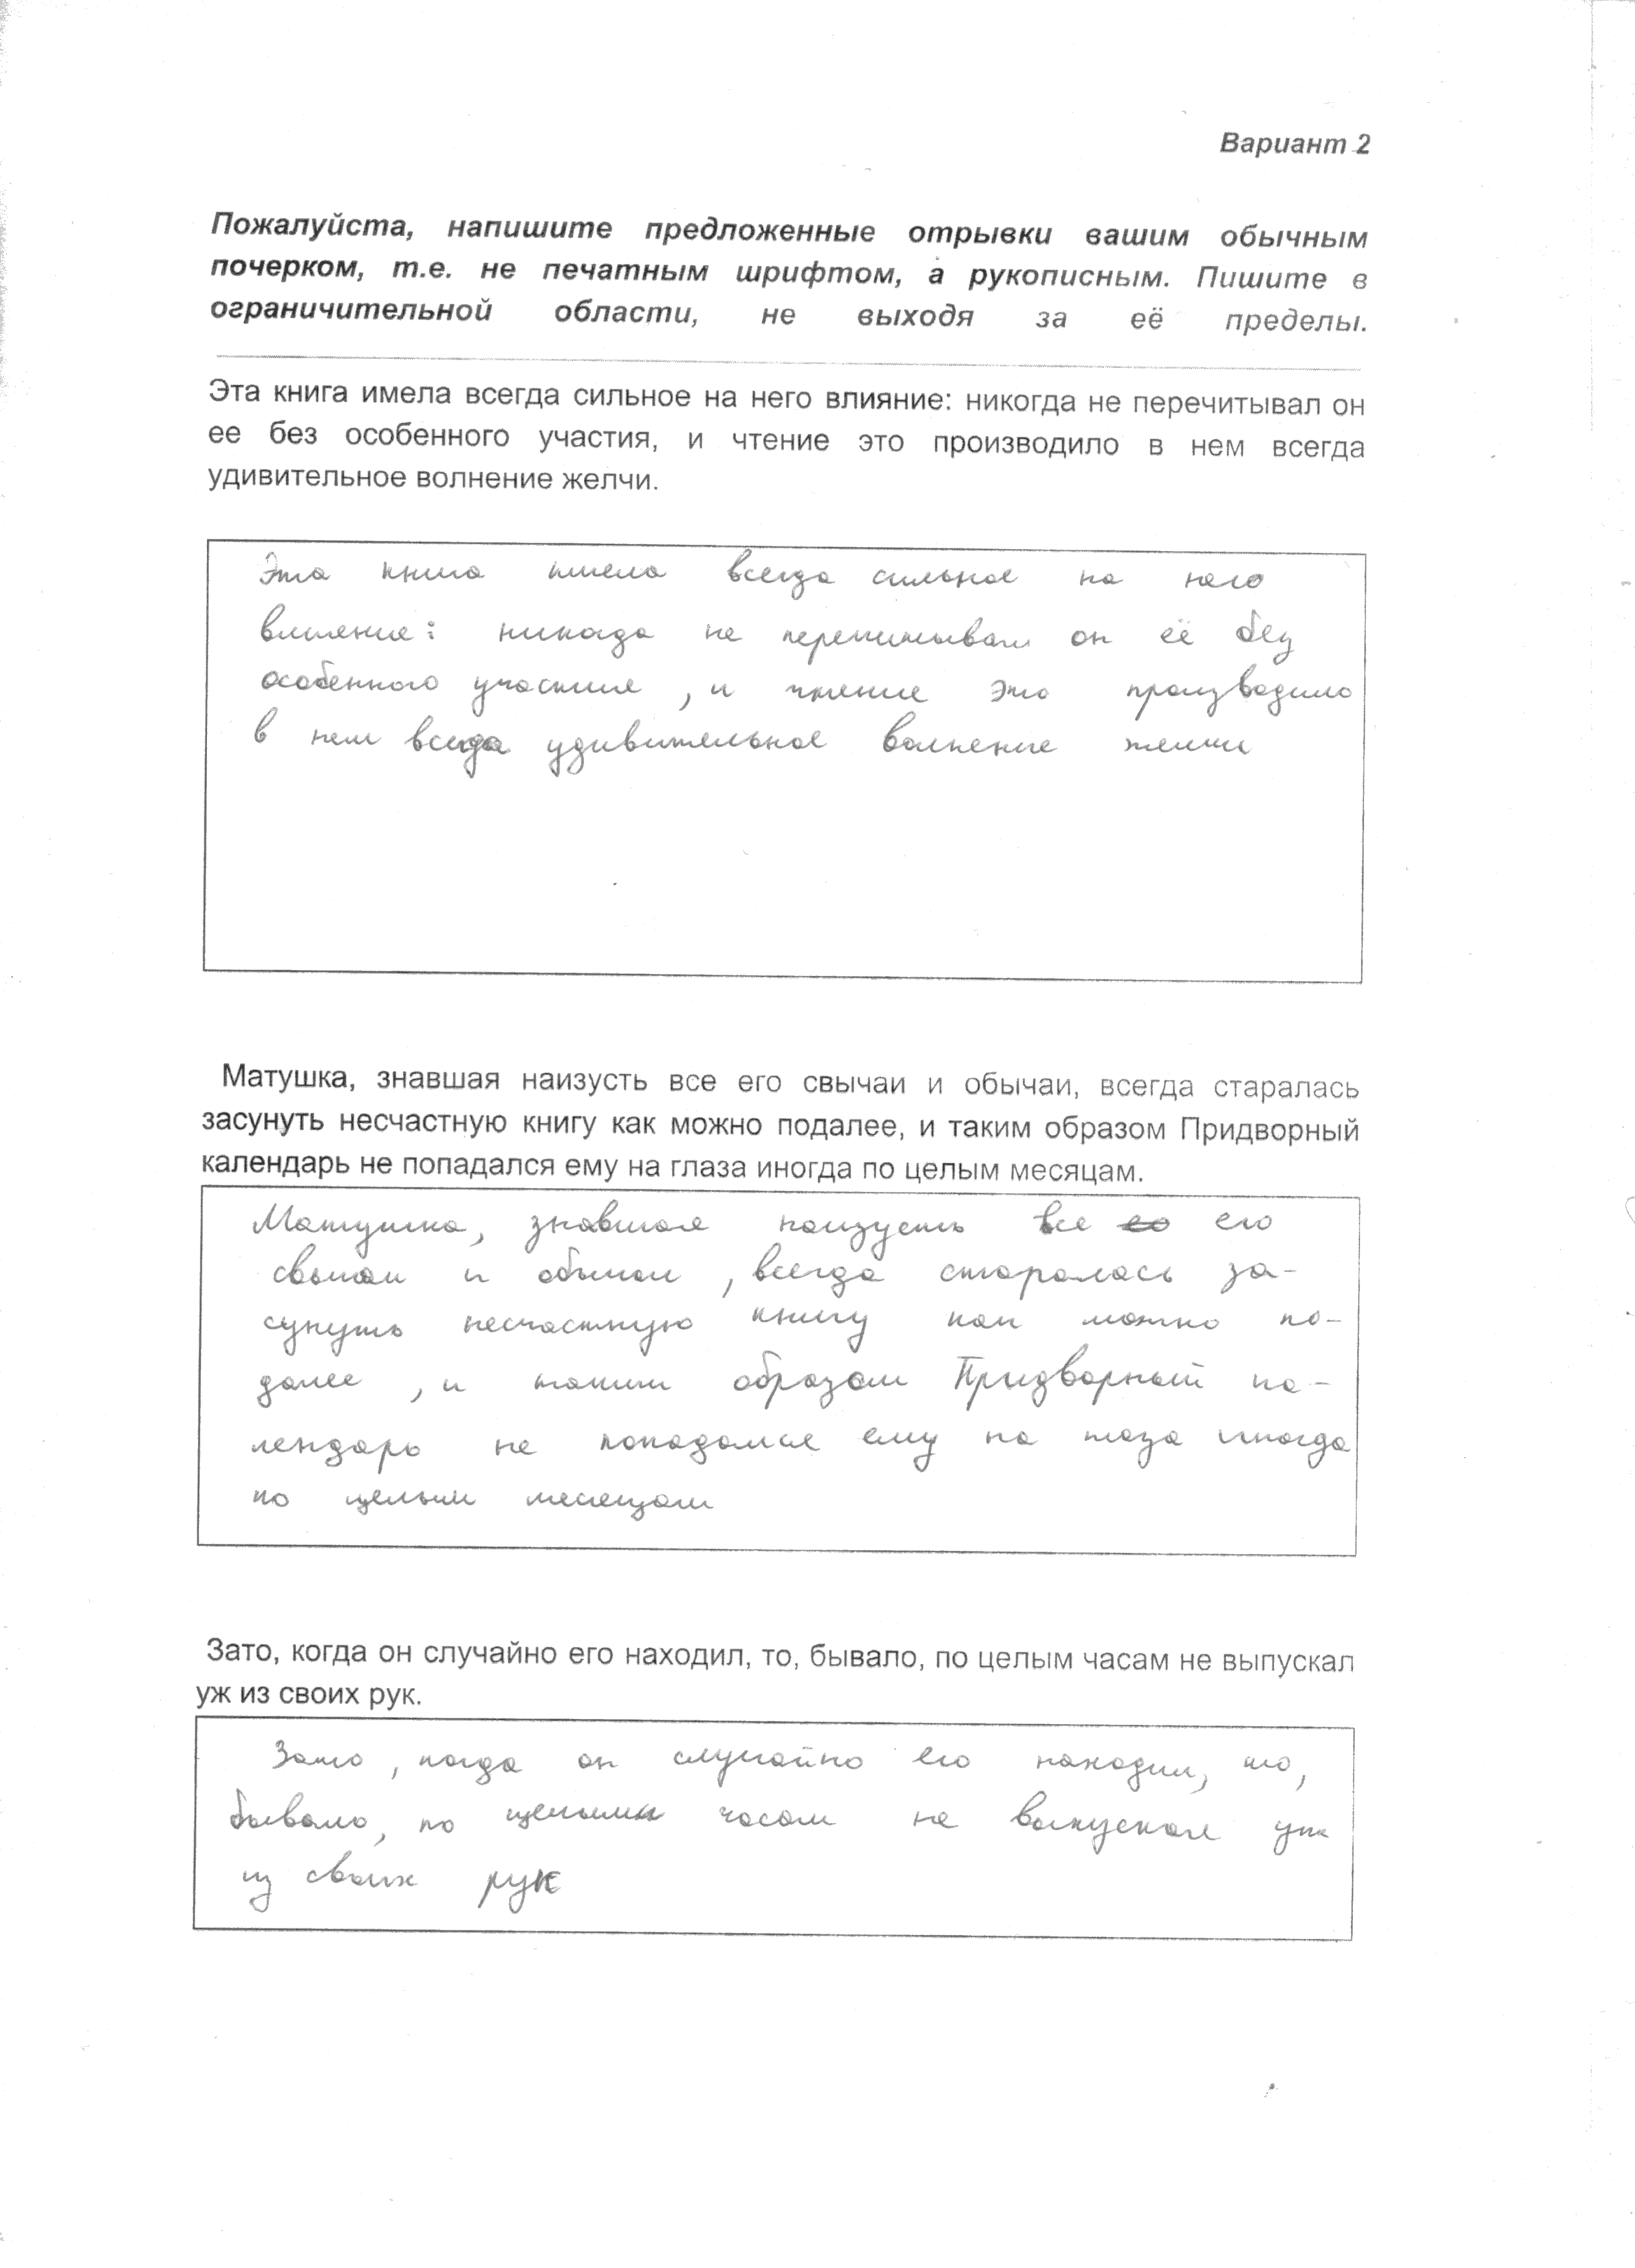 Вариант 2
Пожалуйста, напишите предложенные отрывки вашим обычным
почерком, т.е. не печатным шрифтом, а рукописным. Пишите в
ограничительной области, не выходя за её пределы.
Эта книга имела всегда сильное на него влияние: никогда не перечитывал он
ее без особенного участия, и чтение это производило в нем всегда
удивительное волнение желчи.
Эта книга имела всегда сильное на него
влияние: никогда не перечитывал он её без
особенного участия, и чтение это производило
в нем всегда удивительное волнение желчи
Матушка, знавшая наизусть все его свычаи и обычаи, всегда старалась
засунуть несчастную книгу как можно подалее, и таким образом Придворный
календарь не попадался ему на глаза иногда по целым месяцам.
Матушка, знавшая наизусть все его
свычаи и обычаи, всегда старалась за-
сунуть несчастную книгу как можно по-
далее, и таким образом Придворный ка-
лендарь не попадался ему на глаза иногда
по целым месяцам
Зато, когда он случайно его находил, то, бывало, по целым часам не выпускал
уж из своих рук.
Зато, когда он случайно его находил, то,
бывало, по целыми часам не выпускал уж
из своих рук